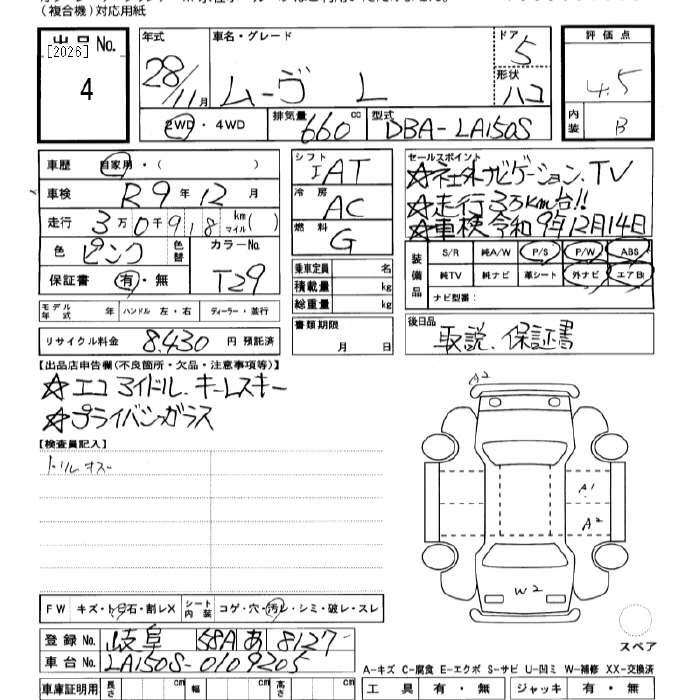 (複合機)対応用紙
出品No.
[2026]
4
年式
28/11月
車名・グレード
ムーヴ L
ドア
5
形状
ハコ
2WD・4WD
排気量
660cc
型式
DBA-LA150S
評価点
4.5
内装
B
車歴 自家用・( )
車検 R9年12月
走行 3万0千918km マイル( )
色 ピンク 色替
カラーNo.
T29
保証書 有・無
モデル年式 年 ハンドル 左・右 ディーラー・並行
リサイクル料金 8,430円 預託済
シフト
IAT
冷房
AC
燃料
G
乗車定員 名
積載量 kg
総重量 kg
書類期限
月 日
セールスポイント
☆社外ナビゲーション、TV
☆走行3万km台!!
☆車検令和9年12月14日
装備品
S/R 純A/W P/S P/W ABS
純TV 純ナビ 革シート 外ナビ エアB
ナビ型番:
後日品
取説、保証書
【出品店申告欄(不良箇所・欠品・注意事項等)】
☆エコアイドル、キーレスキー
☆プライバシーガラス
【検査員記入】
A2
A1
A2
W2
FW キズ・トビ石・割レX シート内装 コゲ・穴・汚レ・シミ・破レ・スレ
登録No. 岐阜 58A あ 8127
車台No. LA150S-0109205
スペア
A-キズ C-腐食 E-エクボ S-サビ U-凹ミ W-補修 XX-交換済
車庫証明用 長さ cm 幅 cm 高さ cm
工具 有・無 ジャッキ 有・無